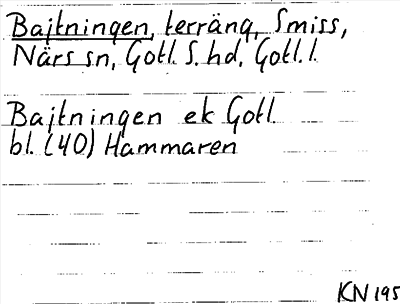 Bajtningen, terräng, Smiss,
Närs sn, Gotl. S. hd, Gotl. l.
Bajtningen ek Gotl.
bl. (40) Hammaren
KN 195